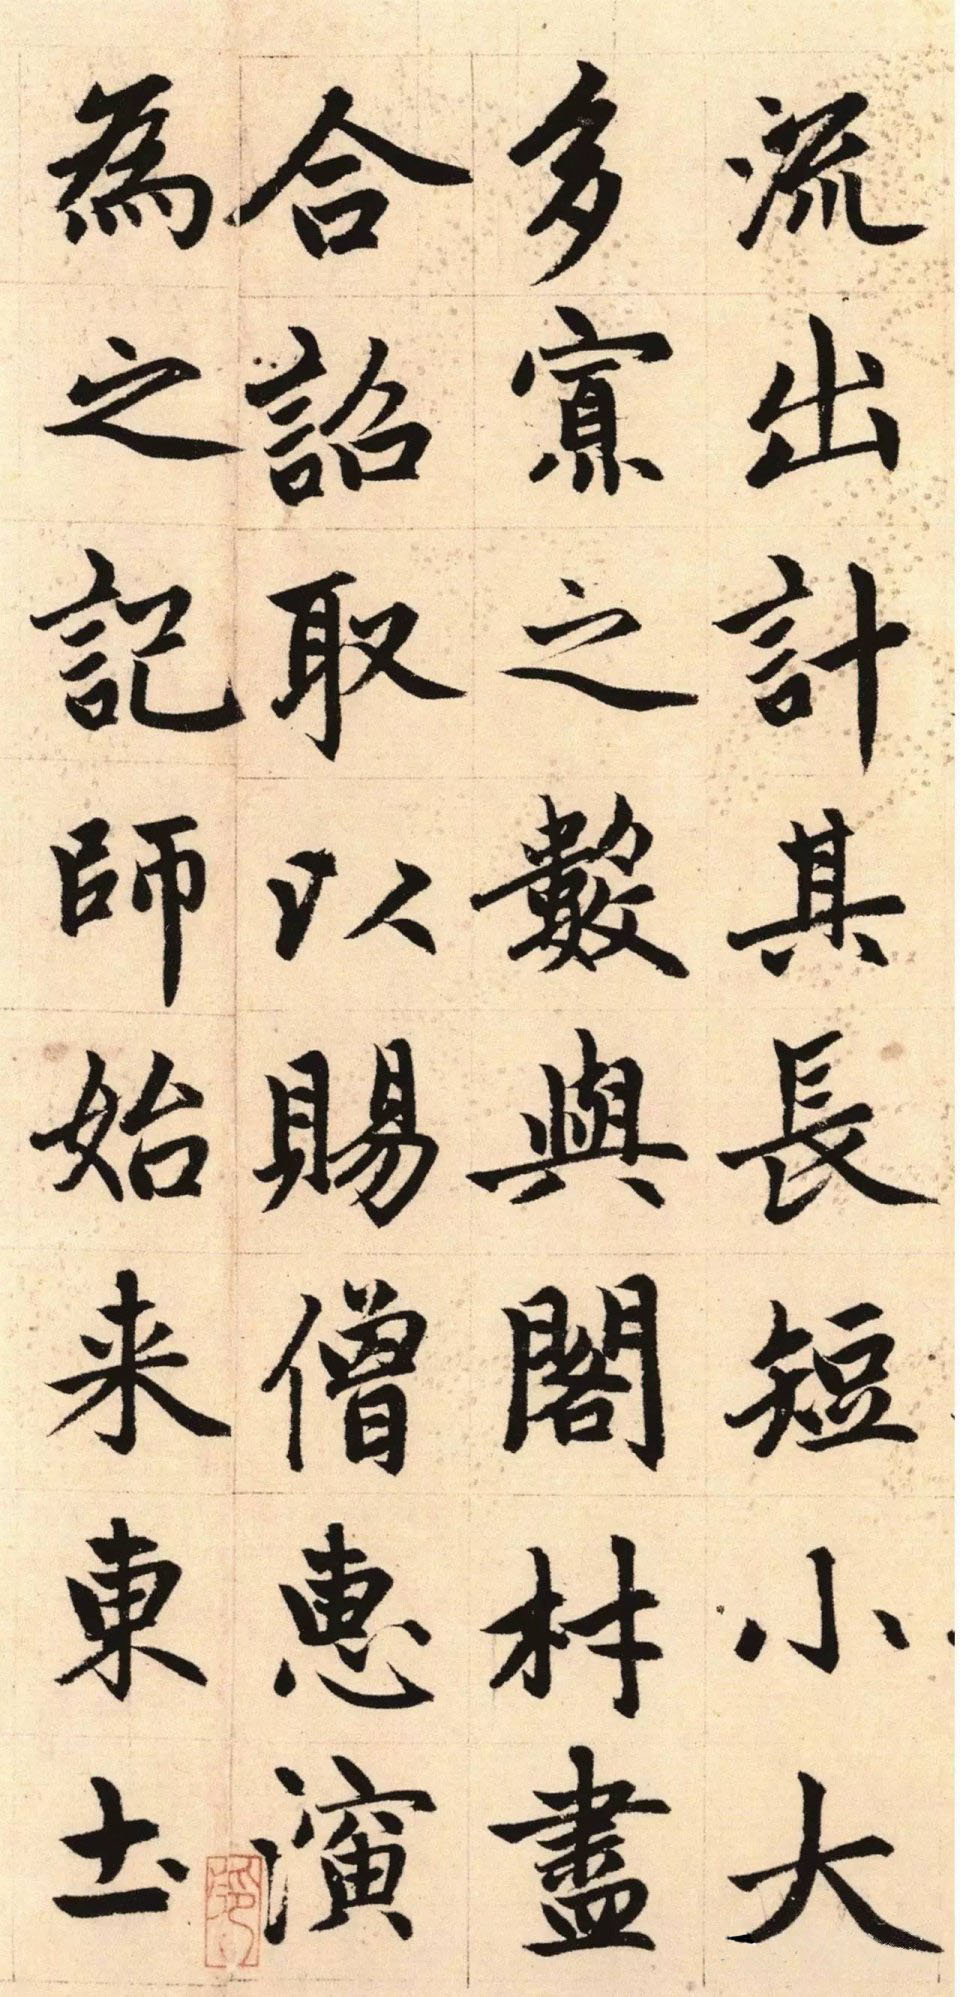 流出計其長短小大
多寡之數與閣材盡
合詔取以賜僧惠演
為之記師始来東土